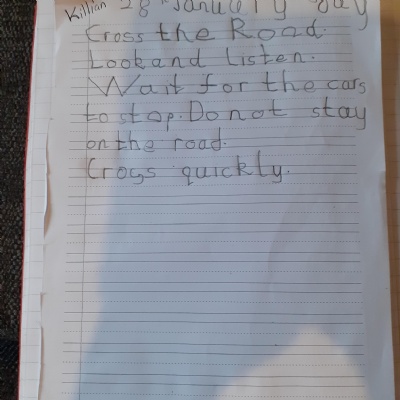 Killian 28th January
Cross the Road.
Look and Listen.
Wait for the cars
to stop. Do not stay
on the road.
Cross quickly.